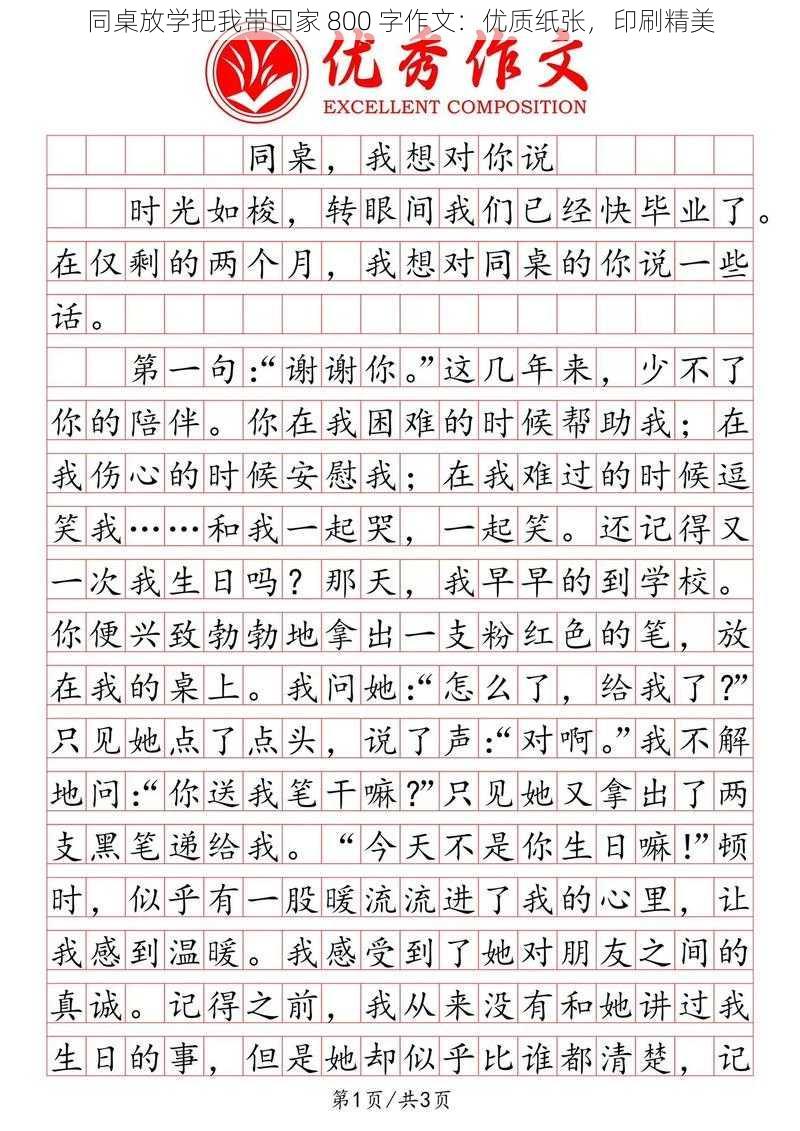 同桌放学把我带回家 800 字作文：优质纸张，印刷精美
优秀作文
EXCELLENT COMPOSITION
同桌，我想对你说
时光如梭，转眼间我们已经快毕业了。
在仅剩的两个月，我想对同桌的你说一些
话。
第一句：“谢谢你。”这几年来，少不了
你的陪伴。你在我困难的时候帮助我；在
我伤心的时候安慰我；在我难过的时候逗
笑我……和我一起哭，一起笑。还记得又
一次我生日吗？那天，我早早的到学校。
你便兴致勃勃地拿出一支粉红色的笔，放
在我的桌上。我问她：“怎么了，给我了？”
只见她点了点头，说了声：“对啊。”我不解
地问：“你送我笔干嘛？”只见她又拿出了两
支黑笔递给我。“今天不是你生日嘛！”顿
时，似乎有一股暖流流进了我的心里，让
我感到温暖。我感受到了她对朋友之间的
真诚。记得之前，我从来没有和她讲过我
生日的事，但是她却似乎比谁都清楚，记
第1页/共3页